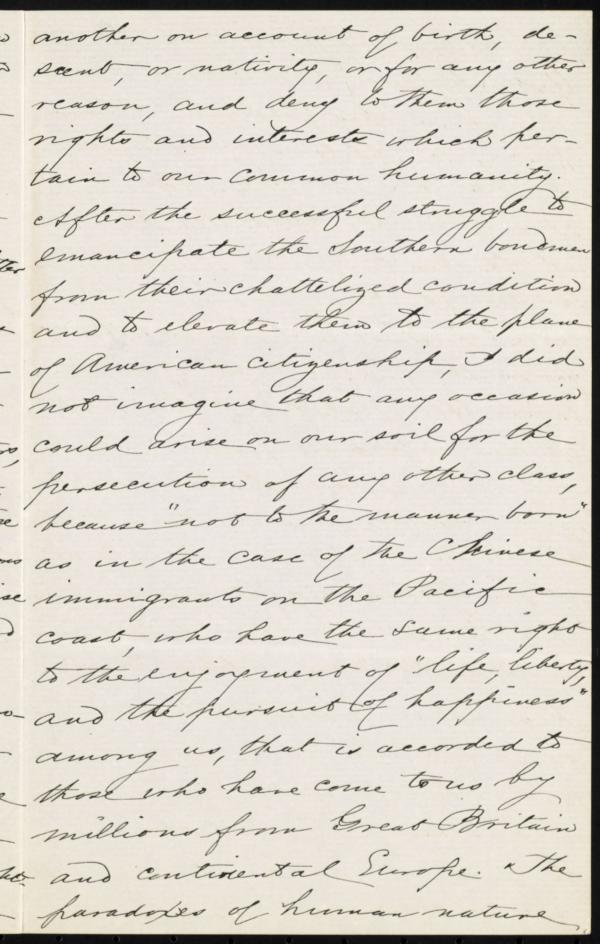 another on account of birth, de-
scent, or nativity, or for any other
reason, and deny to them those
rights and interests which per-
tain to our common humanity.
After the successful struggle to
emancipate the Southern bondmen
from their chattelized condition
and to elevate them to the plane
of American citizenship, I did
not imagine that any occasion
could arise on our soil for the
persecution of any other class,
because "not to the manner born"
as in the case of the Chinese
immigrants on the Pacific
coast, who have the same right
to the enjoyment of "life, liberty,
and the pursuit of happiness"
among us, that is accorded to
those who have come to us by
millions from Great Britain
and continental Europe. The
paradoxes of human nature